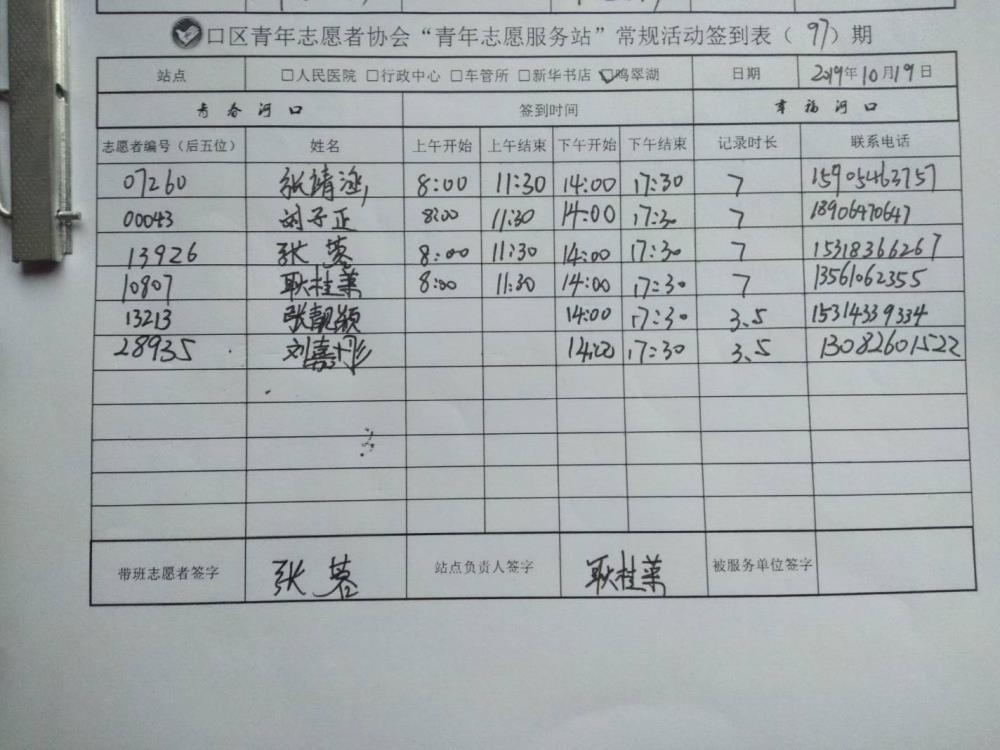 口区青年志愿者协会“青年志愿服务站”常规活动签到表（97）期
站点 □人民医院 □行政中心 □车管所 □新华书店 ☑鸣翠湖 日期 2019年10月19日
青春河口 签到时间 幸福河口
志愿者编号（后五位） 姓名 上午开始 上午结束 下午开始 下午结束 记录时长 联系电话
07260 张靖鸿 8:00 11:30 14:00 17:30 7 15905463757
00043 刘子正 8:00 11:30 14:00 17:30 7 18906470647
13926 张蓉 8:00 11:30 14:00 17:30 7 15318366267
10807 耿桂荣 8:00 11:30 14:00 17:30 7 13561062355
13213 张靓颖 14:00 17:30 3.5 15314339334
28935 刘嘉彤 14:00 17:30 3.5 13082601522
带班志愿者签字 张蓉 站点负责人签字 耿桂荣 被服务单位签字